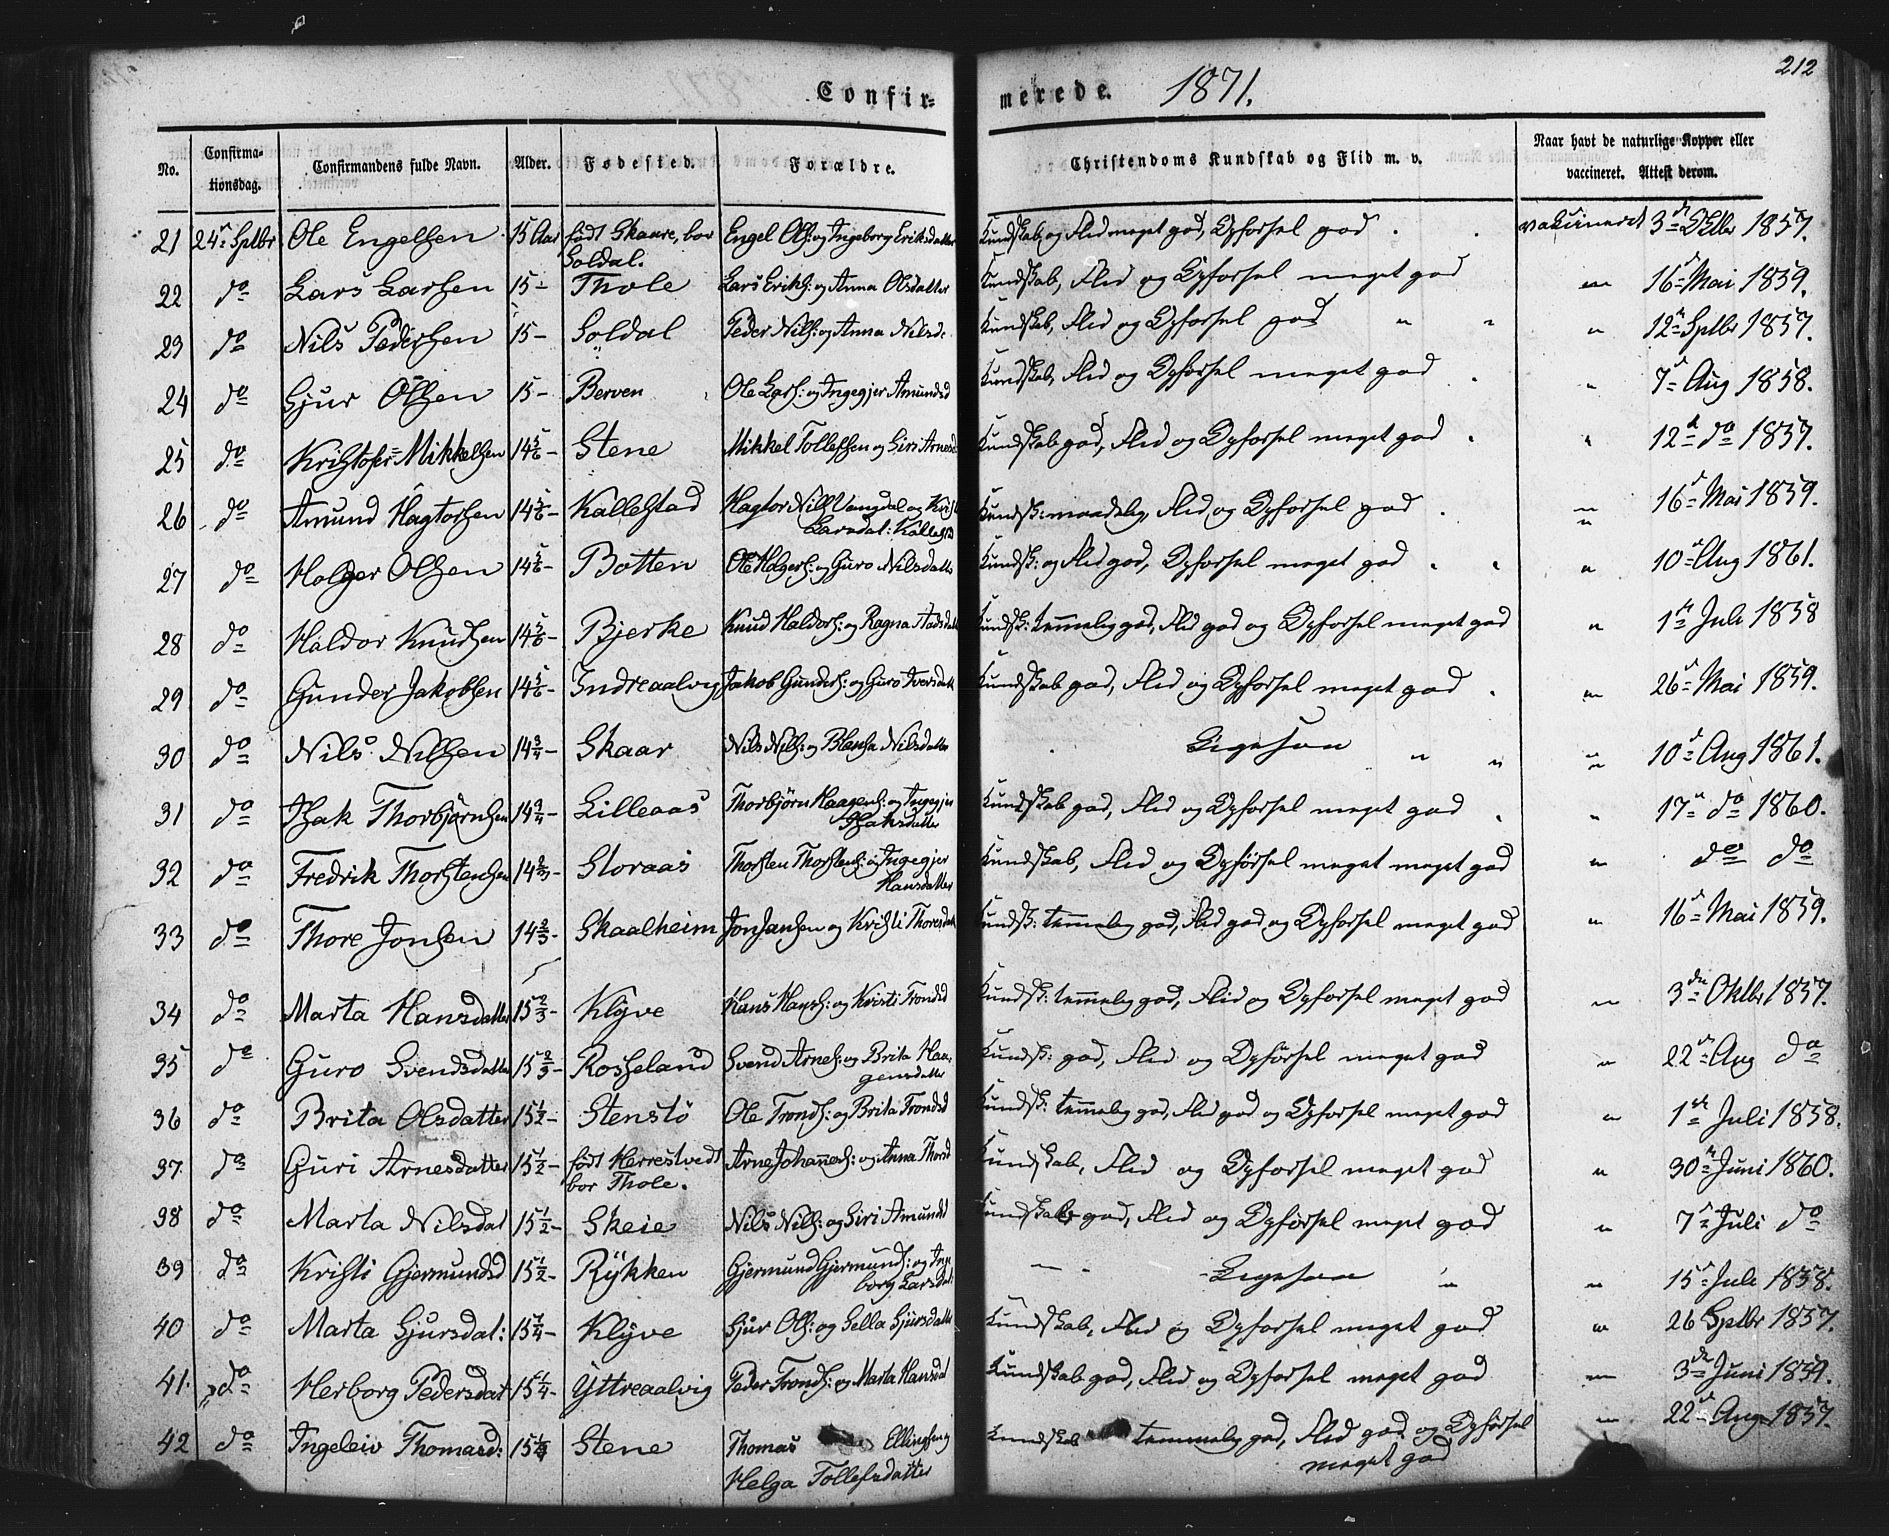 212
Confirmerede. 1871.
No. Confirmationsdag. Confirmandens fulde Navn. Alder. Fødested. Forældre. Christendoms Kundskab og Flid m. v. Naar havt de naturlige Kopper eller vaccineret. Attest derom.
21 24de Sptbr Ole Engelsen 15 Aar født Skaare, bor Soldal. Engel Ols: og Ingeborg Eriksdatter Kundskab og Flid meget god, Opførsel god vakcineret 3de Oktbr 1857.
22 do Lars Larsen 15 - Thole Lars Eriks: og Anna Olsdatter Kundskab, Flid og Opførsel meget god " 16de Mai 1859.
23 do Nils Pedersen 15 - Soldal Peder Nils: og Anna Nilsd: Kundskab, Flid og Opførsel god " " " 12te Sptbr 1857.
24 do Sjur Olsen 15 - Berven Ole Lars: og Ingegjer Amundsd Kundskab, Flid og Opførsel meget god " 7de Aug 1858.
25 do Kristofer Mikkelsen 14 5/6 - Stene Mikkel Tollefsen og Siri Arnesd Kundskab god, Flid og Opførsel meget god " 12te do 1857.
26 do Amund Hagtorsen 14 5/6 - Kallestad Hagtor Nils: Vangdal og Larsdat: Kallestad Kundsk: maadelig, Flid og Opførsel god " 16de Mai 1859.
27 do Holger Olsen 14 5/6 - Botten Ole Holgers: og Guro Nilsdatter Kundsk: og Flid god, Opførsel meget god " 10de Aug 1861.
28 do Haldor Knudsen 14 5/6 - Bjerke Knud Haldors: og Ragna Kundsk: temmelig god, Flid god og Opførsel meget god " 1ste Juli 1858
29 do Gunder Jakobsen 14 5/6 - Indreaalvig Jakob Gunders: og Guro Iversdatt Kundskab god, Flid og Opførsel meget god " 26de Mai 1859.
30 do Nils Nilsen 14 3/4 - Skaar Nils Nils: og Nilsdatter Ligesaa " " " 10de Aug 1861.
31 do Isak Thorbjørnsen 14 3/4 - Lilleaas Thorbjørn Haagens: og Ingegjer Isaksdatter Kundskab god, Flid og Opførsel meget god " 17de do 1860.
32 do Fredrik Thorstensen 14 2/3 - Storaas Thorsten Thorstens: og Ingegjer Hansdatter Kundskab, Flid og Opførsel meget meget god " do do
33 do Thore Jonsen 14 2/3 - Skaalheim Jon Jansen og Kristi Thoresdatt Kundsk: temmelig god, Flid god og Opførsel meget god " 16de Mai 1859.
34 do Marta Hansdatter 15 2/3 - Klyve Hans Hans: og Kristi Trondsd Kundsk: temmelig god, Flid og Opførsel meget god " 3die Oktbr 1857.
35 do Guro Svendsdatter 15 2/3 - Rosseland Svend Arnes: og Brita Haagensdatter Kundsk: god, Flid og Opførsel meget god " 22de Aug do
36 do Brita Olsdatter 15 1/2 - Stenstø Ole Tronds: og Brita Trondsd Kundsk: temmelig god, Flid god og Opførsel meget god " 1ste Juli 1858.
37. do Guri Arnesdatter 15 1/2 - født Herrestvedt bor Thole. Arne Johannes: og Anna Thorsd Kundskab, Flid og Opførsel meget god " 30te Juni 1860.
38 do Marta Nilsdat 15 1/2 - Skeie Nils Nils: og Siri Amundsd Kundskab god, Flid og Opførsel meget god " 7de Juli do
39 do Kristi Gjermundsd 15 1/2 - Rykken Gjermund Gjermunds: og Ingeborg Larsdat: Ligesaa " " 15de Juli 1858.
40 do Marta Sjursdat: 15 1/4 - Klyve Sjur Ols: og Sella Sjursdatter Kundskab, Flid og Opførsel meget god " 26 Sptbr 1857.
41. do Herborg Pedersdat 15 1/4 - Yttreaalvig Peder Tronds: og Marta Hansdat Kundskab god, Flid og Opførsel meget god " 3die Juni 1859.
42 do Ingeleiv Thomasd: 15 1/4 Stene Thomas Ellingsen og Helga Tollefsdatter Kundskab temmelig god, Flid god og Opførsel meget god " 22de Aug 1857.